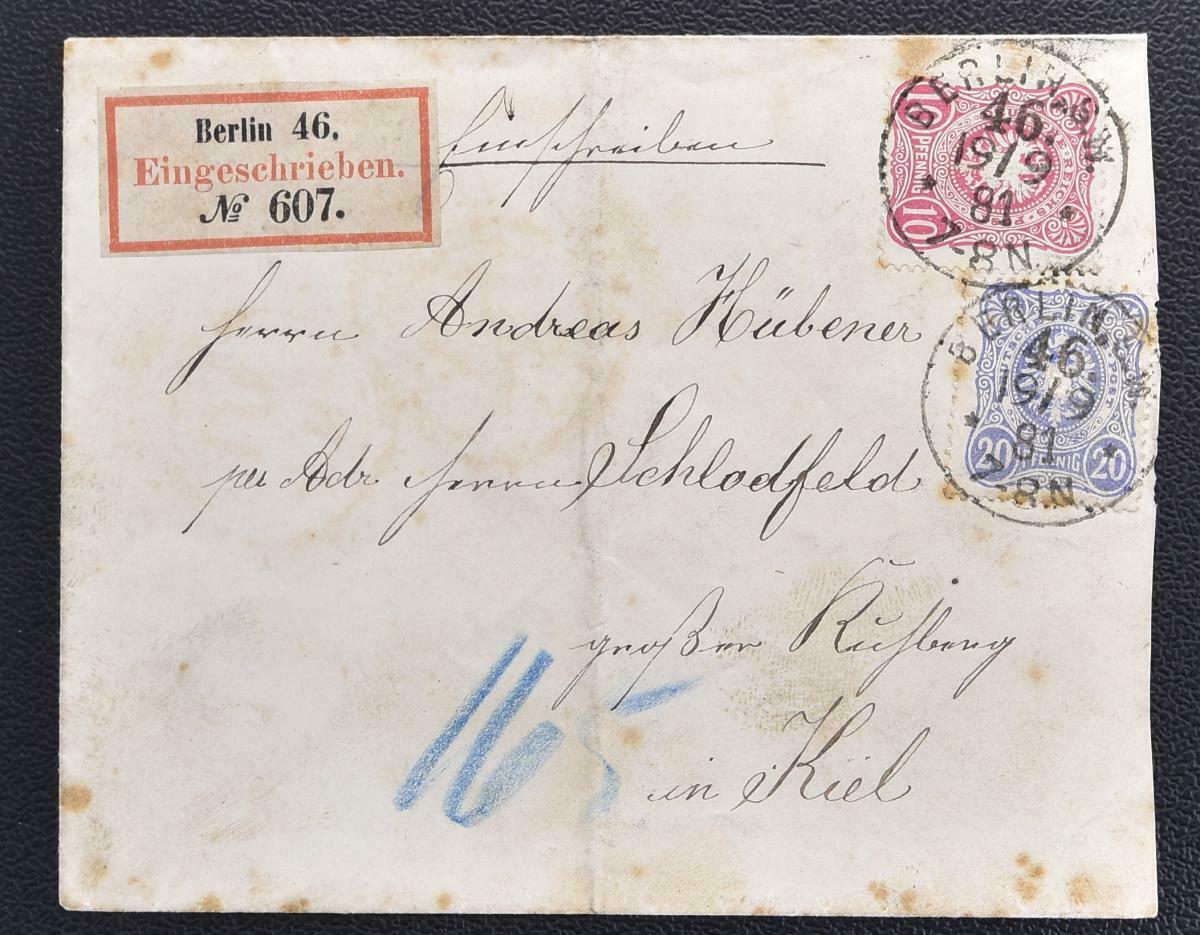 Berlin 46.
Eingeschrieben.
№ 607.
Einschreiben
Herrn Andreas Hübener
per Adr. Herrn Schlodfeld
großer Kuhberg
in Kiel
165
10 PFENNIG 10
BERLIN, S.W.
46.
19/9
81
7-8N
20 PFENNIG 20
BERLIN, S.W.
46.
19/9
81
7-8N